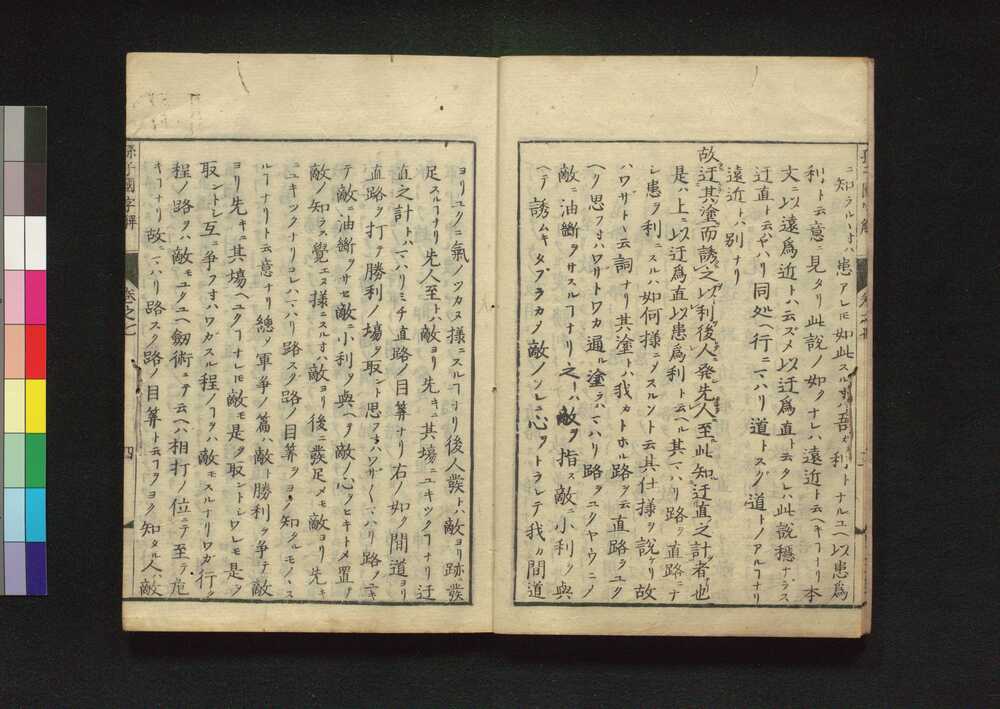 ニ知ラルヽ寸ハ患アレ𪜈如此スル寸ハ吾カ利トナルユヘ以患爲
利ト云意ニ見タリ此説ノ如クナレハ遠近ト云ヘキヿナリ本
文ニ以遠爲近トハ云ズメ以迂爲直ト云タレハ此説穩ナラス
迂直ト云ヤハリ同処ヘ行ニマハリ道トスグ道トノアルヿナリ
遠近トハ別ナリ
故迂其塗而誘之以利後人発先人至此知迂直之計者也
是ハ上ニ以迂爲直以患爲利ト云ヘル其マハリ路ヲ直路ニナ
シ患ヲ利ニスルハ如何様ニメスルソト云其仕様ヲ説ケリ故
ハワサトヽ云詞ナリ其塗トハ我カトホル路ヲ云直路ヲユク
ヘリ思フ寸ハワザトワカ通ル塗ラハマハリ路ヲユクヤウニメ
敵ニ油斷ヲサスルヿナリ之ハ敵ヲ指ス敵ニ小利ヲ與
ヘテ誘ムキタブラカメ敵ノソレニ心ヲトラレテ我カ間道
ヨリユクニ氣ノツカヌ様ニスルヿナリ後人発トハ敵ヨリ跡発
足スルヿナリ先人至トハ敵ヨリ先キニ其塲ニユキツクヿナリ迂
直之計トハマハリミチ直路ノ目算ナリ右ノ如ク間道ヨリ
直路ヲ打テ勝利ノ塲ヲ取ント思フ寸ハワザトマハリ路ヲユキ
テ敵ニ油斷ヲサセ敵ニ小利ヲ與ヘテ敵ノ心ヲヒキトメ置テ
敵ノ知ラス覺エヌ様ニスル寸ハ敵ヨリ後ニ發足メモ敵ヨリ先キ
ニユキツクナリコレハマハリ路スグ路ノ目算ヲヨク知タルモノヽス
ルヿナリト云意ナリ總メ軍爭ノ篇ハ敵ト勝利ヲ爭テ敵
ヨリ先キニ其塲ヘユクヿナレ𪜈敵モ是ヲ取ントシワレモ是ヲ
取ントシ互ニ爭フ寸ハワガスル程ノヿヲハ敵モスルナリワガ行ク
程ノ路ヲハ敵モユクユヘ劔術ニテ云ヘハ相打ノ位ニテ至テ危
キヿナリ故ニマハリ路スグ路ノ目算ト云ヿヲヨク知タル人ハ敵
孫子國字解
卷之七
四